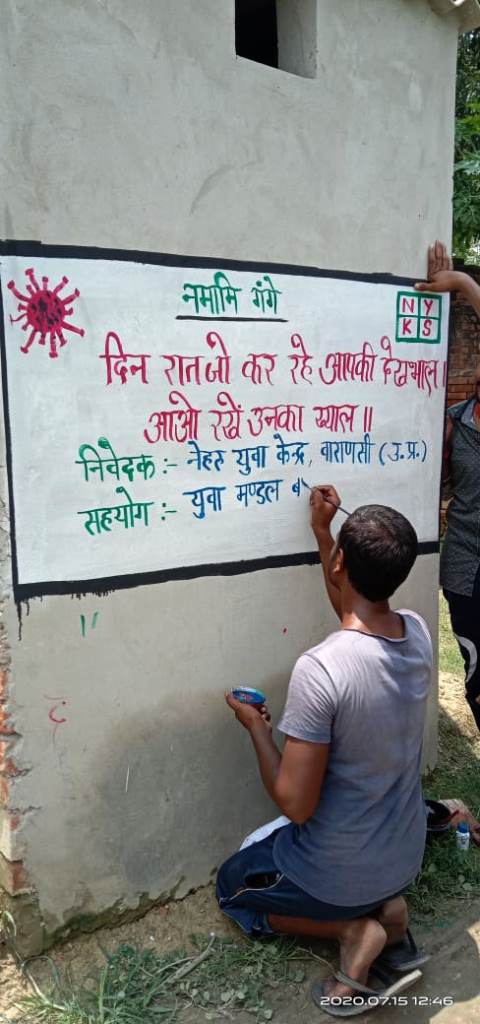 नमामि गंगे
NY
KS
दिन रात जो कर रहे आपकी देखभाल।
आओ रखें उनका ख्याल॥
निवेदक :- नेहरु युवा केन्द्र, वाराणसी (उ.प्र.)
सहयोग :- युवा मण्डल
2020.07.15 12:46